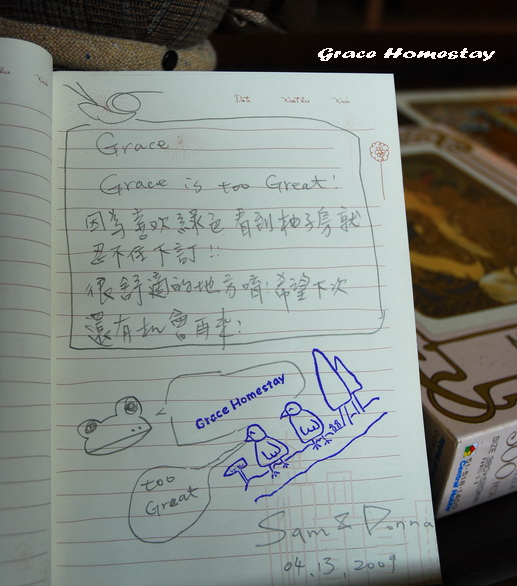 Grace Homestay
Grace:
Grace is too Great!
因為喜歡綠色 看到柚子房就
忍不住下訂!!
很舒適的地方唷!希望下次
還有机會再來!
Grace Homestay
too
Great
Sam & Donna
04.13.2009
500